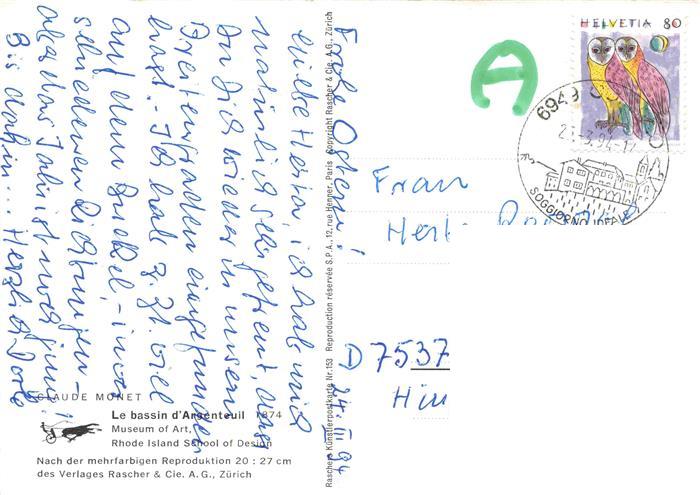 Frohe Ostern!
Liebe Herta, ich hab mich
natürlich sehr gefreut, dass
Du Dich wieder in unseren
Breitengraden eingefunden
hast. - Ich hab z. Zt. viel
auf dem Buckel, - in ver-
schiedenen Richtungen -
aber das Jahr ist noch jung!
Bis dahin ... Herzlich Dorle
CLAUDE MONET
Le bassin d'Argenteuil 1874
Museum of Art,
Rhode Island School of Design
Nach der mehrfarbigen Reproduktion 20 : 27 cm
des Verlages Rascher & Cie. A.G., Zürich
Raschers Künstlerpostkarte Nr. 153 Reproduction réservée S.P.A., 12, rue Henner, Paris Copyright Rascher & Cie. A.G., Zürich
24. III 94
A
HELVETIA 80
6949
3.94-17
SOGGIORNO IDEALE
Frau
D 7537